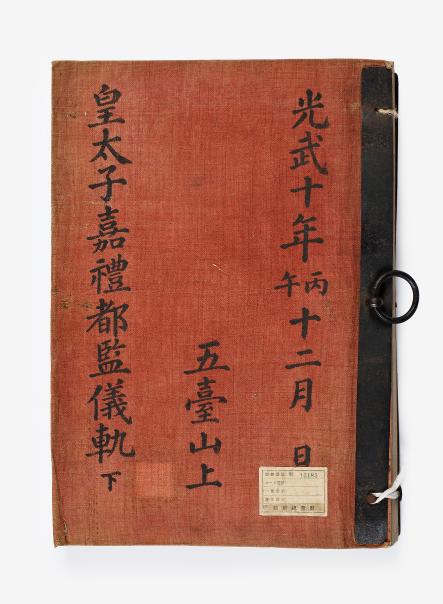 光武十年丙午十二月 日
五臺山上
皇太子嘉禮都監儀軌 下